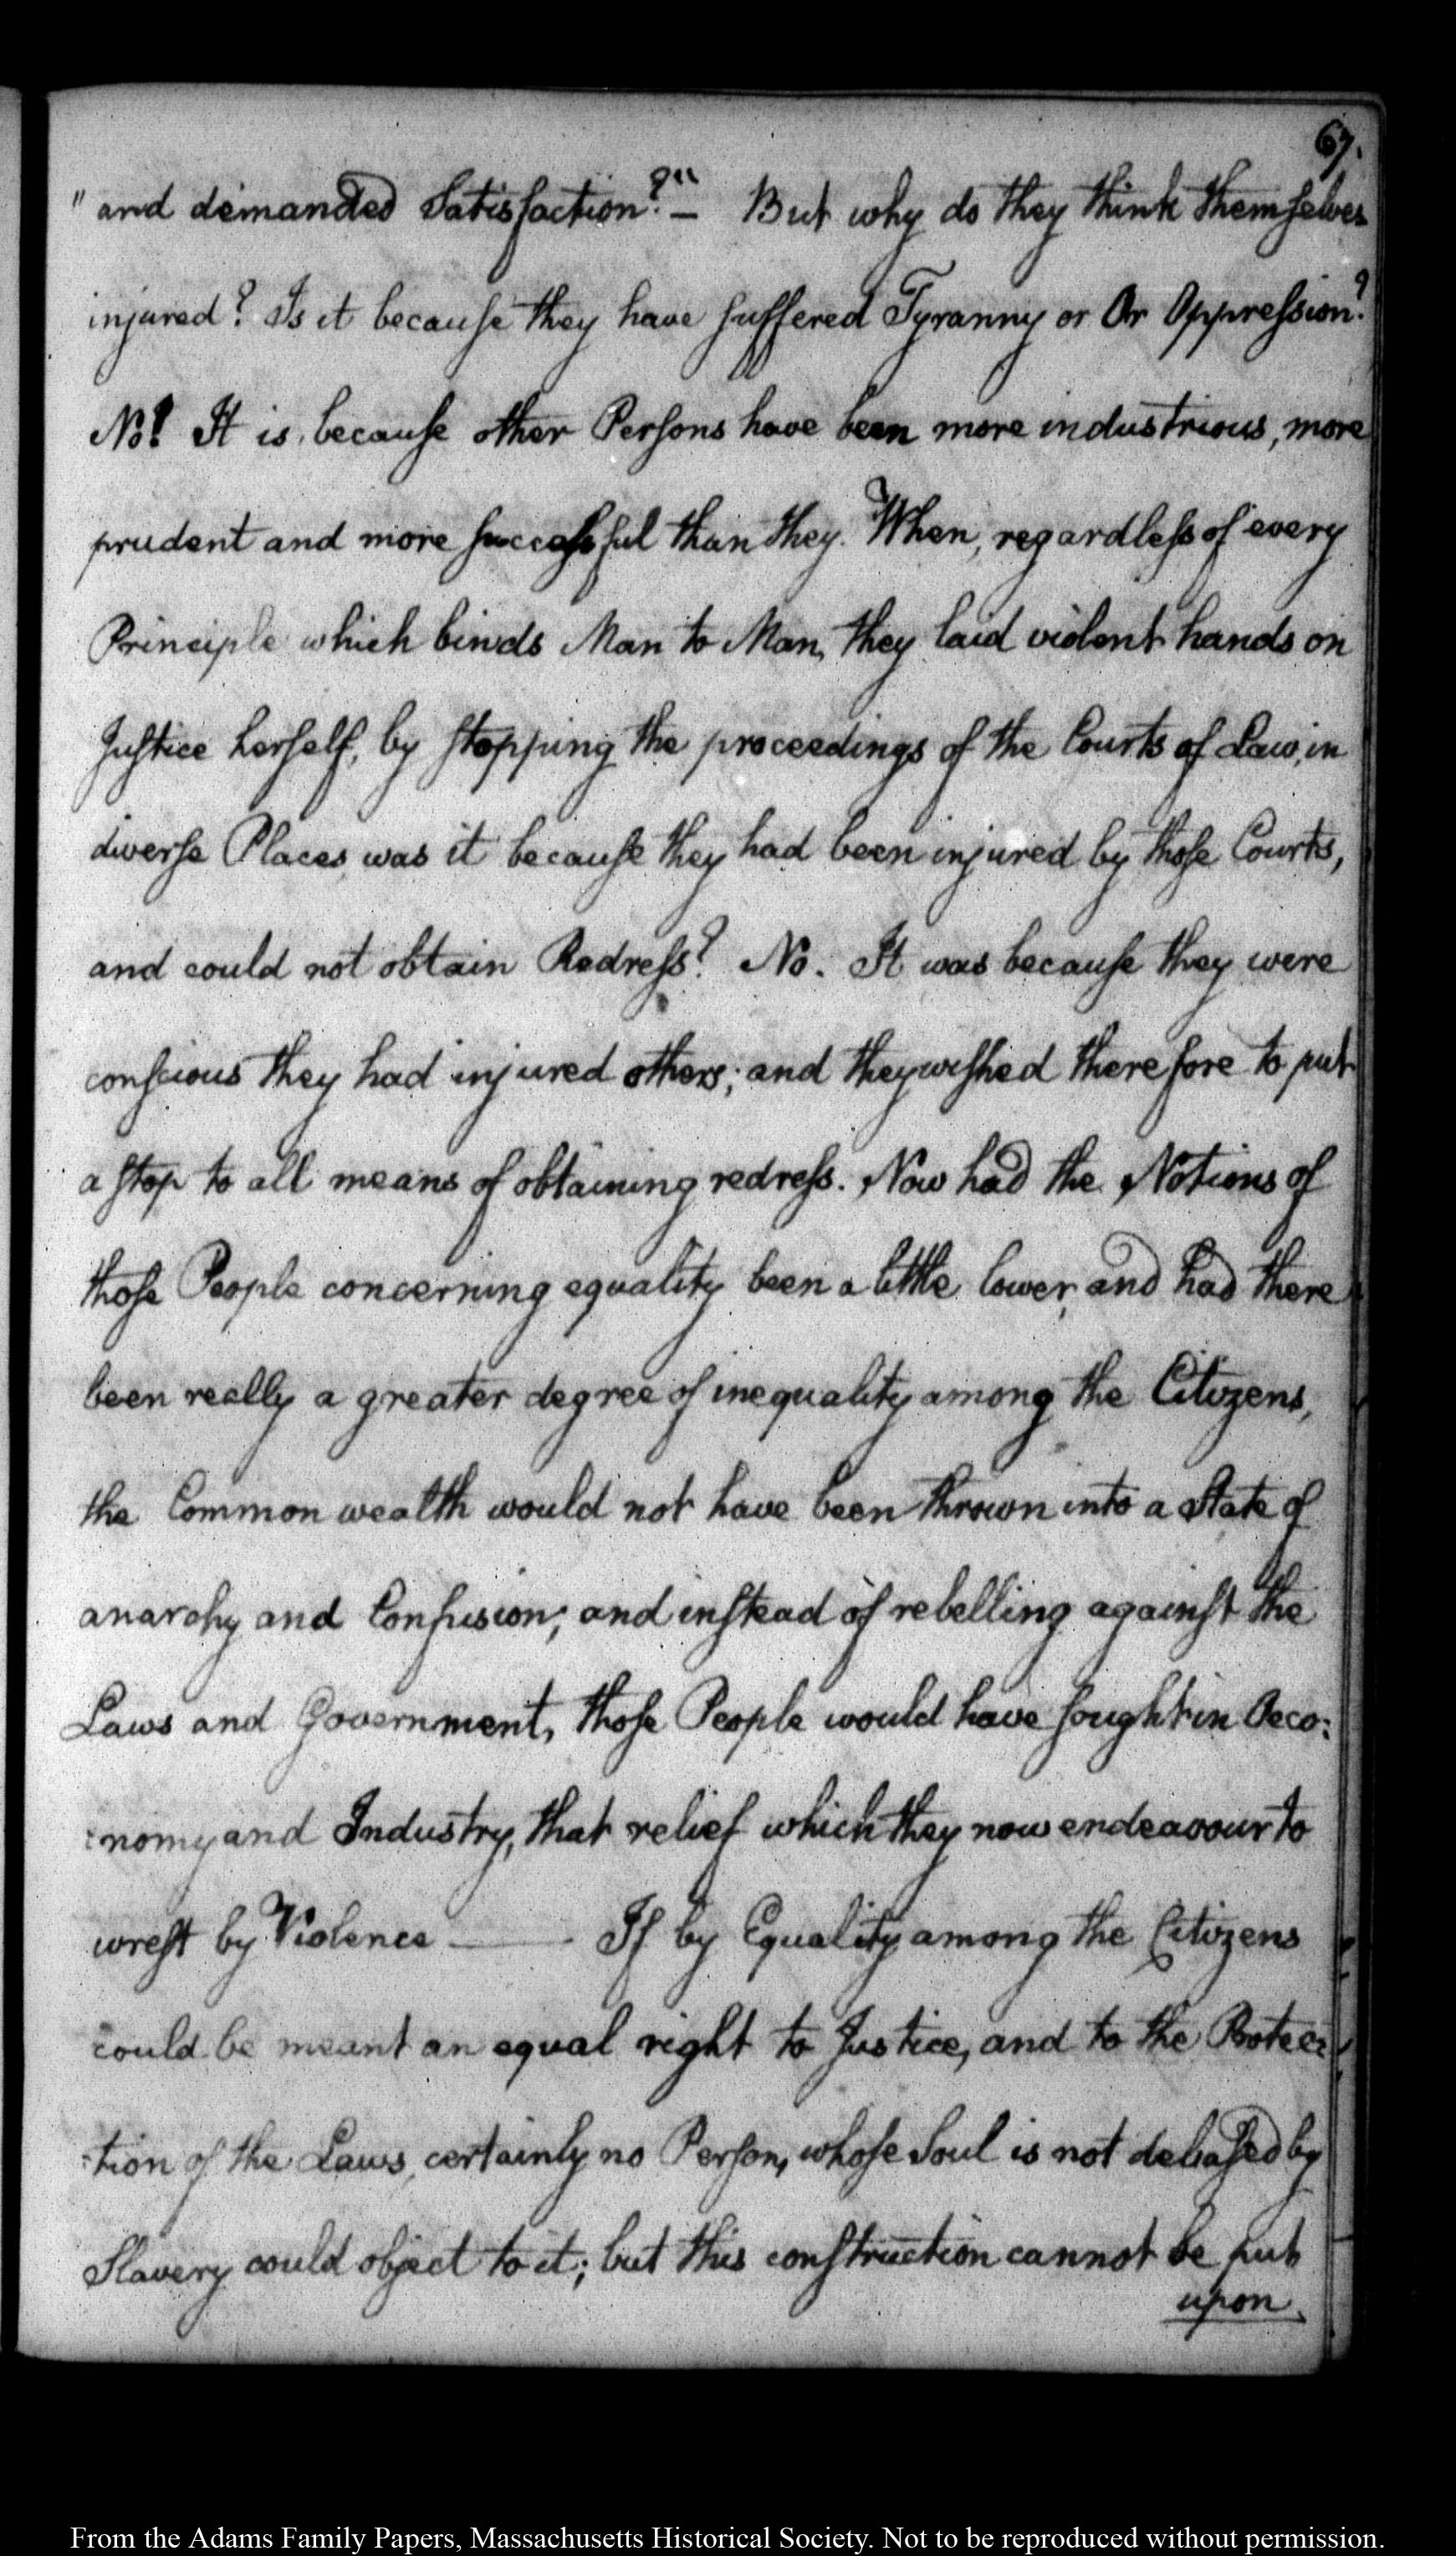 67.
" and demanded Satisfaction?"— But why do they think themselves
injured? Is it because they have suffered Tyranny or Or Oppression?
No! It is, because other Persons have been more industrious, more
prudent and more successful than they. When, regardless of every
Principle which binds Man to Man, they laid violent hands on
Justice herself, by stopping the proceedings of the Courts of Law, in
diverse Places, was it because they had been injured by those Courts,
and could not obtain Redress? No. It was because they were
conscious they had injured others; and they wished therefore to put
a stop to all means of obtaining redress. Now had the Notions of
those People concerning equality been a little lower, and had there
been really a greater degree of inequality among the Citizens,
the Common wealth would not have been thrown into a State of
anarchy and Confusion; and instead of rebelling against the
Laws and Government, those People would have sought in Oeco:
:nomy and Industry, that relief which they now endeavour to
wrest by Violence —— If by Equality among the Citizens
could be meant an equal right to Justice, and to the Protec:
:tion of the Laws, certainly no Person, whose Soul is not debased by
Slavery could object to it; but this construction cannot be put
upon
From the Adams Family Papers, Massachusetts Historical Society. Not to be reproduced without permission.